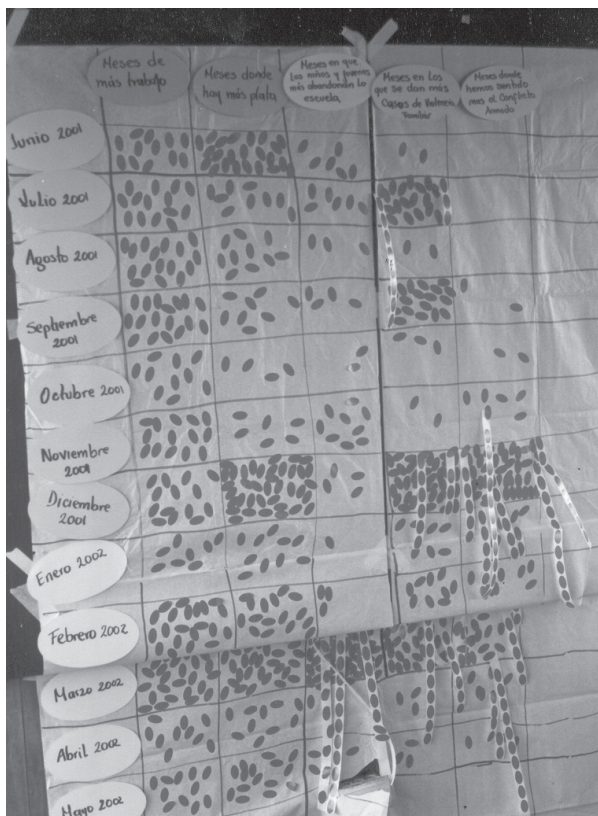 Meses de
más trabajo
Meses donde
hay más plata
Meses en que
los niños y jóvenes
más abandonan la
escuela
Meses en los
que se dan más
Casos de
Meses donde
hemos sentido
mas el Conflicto
Armado
Junio 2001
Julio 2001
Agosto 2001
Septiembre
2001
Octubre 2001
Noviembre
2001
Diciembre
2001
Enero 2002
Febrero 2002
Marzo 2002
Abril 2002
Mayo 2002